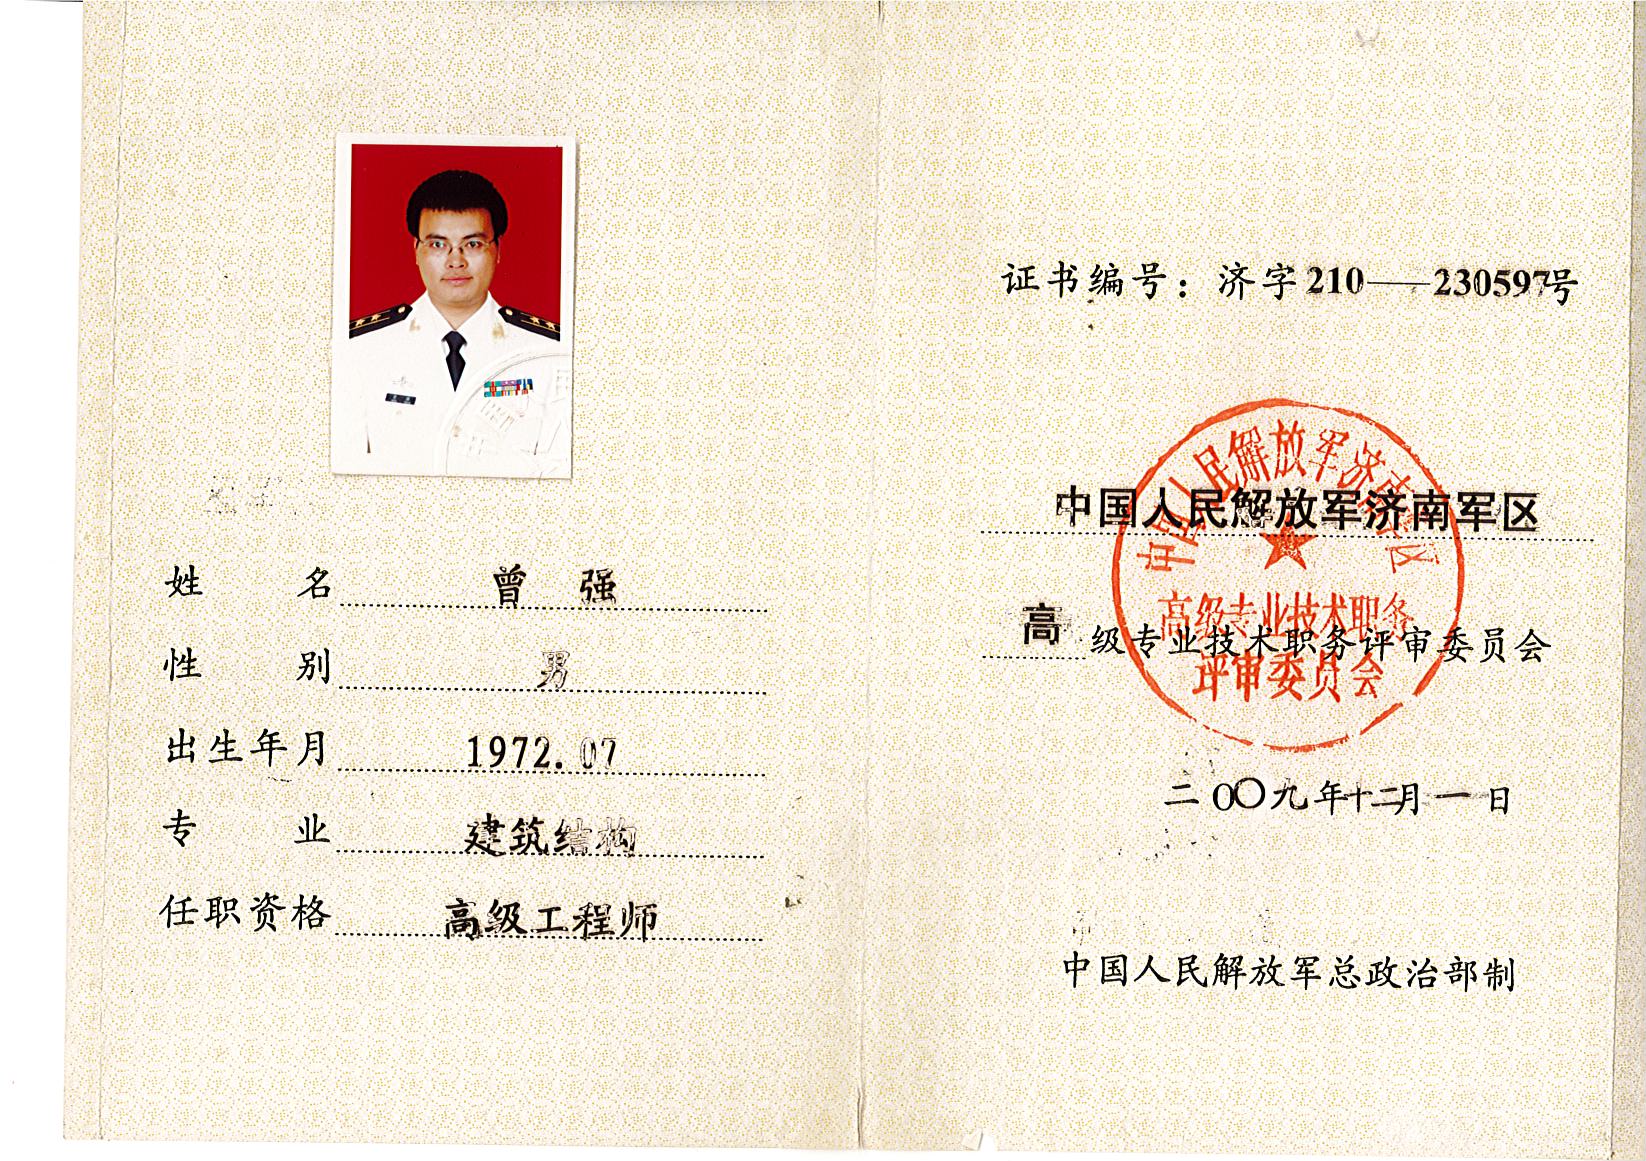 姓名 曾强
性别 男
出生年月 1972.07
专业 建筑结构
任职资格 高级工程师
证书编号：济字210——230597号
中国人民解放军济南军区
高级专业技术职务评审委员会
中国人民解放军济南军区
高级专业技术职务
评审委员会
二〇〇九年十二月一日
中国人民解放军总政治部制